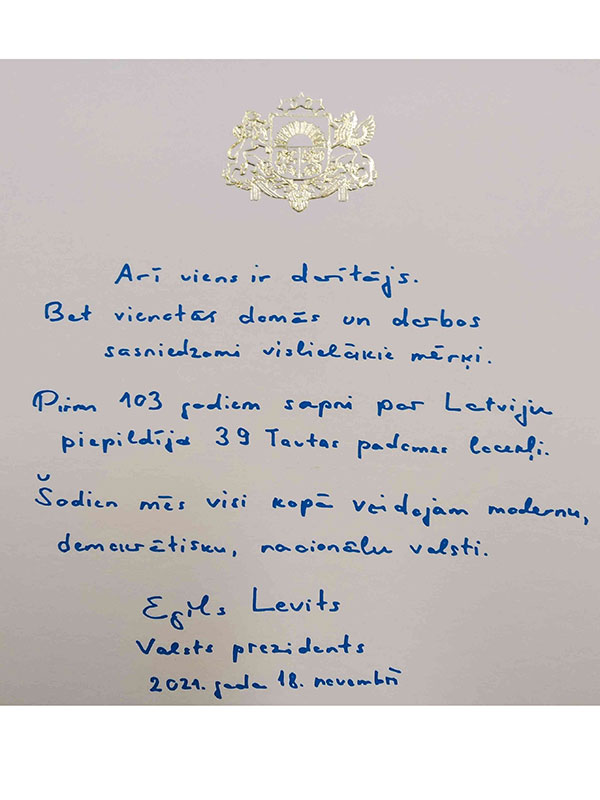 Arī viens ir darītājs.
Bet vienotās domās un darbos
sasniedzami vislielākie mērķi.
Pirms 103 gadiem sapni par Latviju
piepildīja 39 Tautas padomes locekļi.
Šodien mēs visi kopā veidojam modernu,
demokrātisku, nacionālu valsti.
Egils Levits
Valsts prezidents
2021. gada 18. novembrī